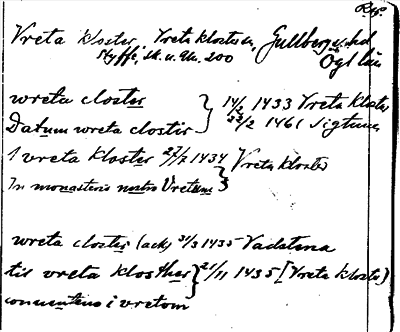 Rep.
Vreta kloster, Vreta klosters, Gullbergs hd
Styffe, Sk. u. Un. 200 Ögl län
wreta closter } 14/2 1433 Vreta kloster
Datum wreta closter 22/2 1461 Sigtuna
I vreta kloster 27/2 1434 } Vreta kloster
In monasterio nostro Vretum
wreta closter (ack) 31/3 1435 Vadstena
tis vreta klosther } 21/11 1435 [Vreta kloster)
conuentens i vretom